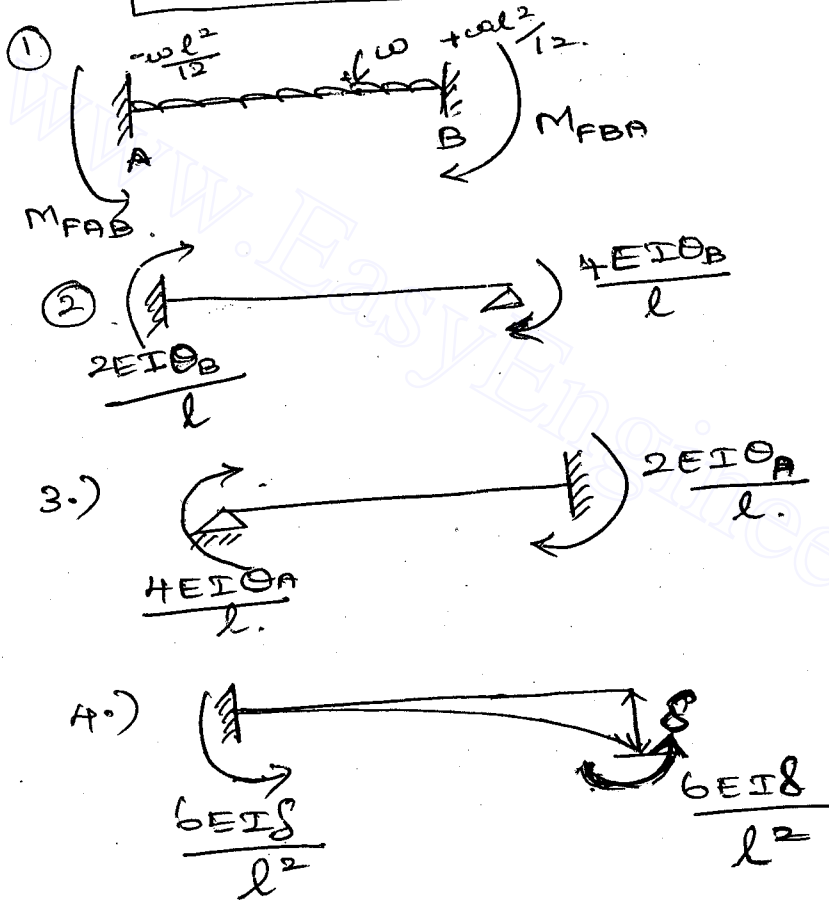 ①
-wl²/12
w
+wl²/12.
A
B
MFBA
MFAB.
②
4EIθB/l
2EIθB/l
3.)
2EIθA/l.
4EIθA/l.
4.)
δ
6EIδ/l²
6EIδ/l²
www.EasyEnginee